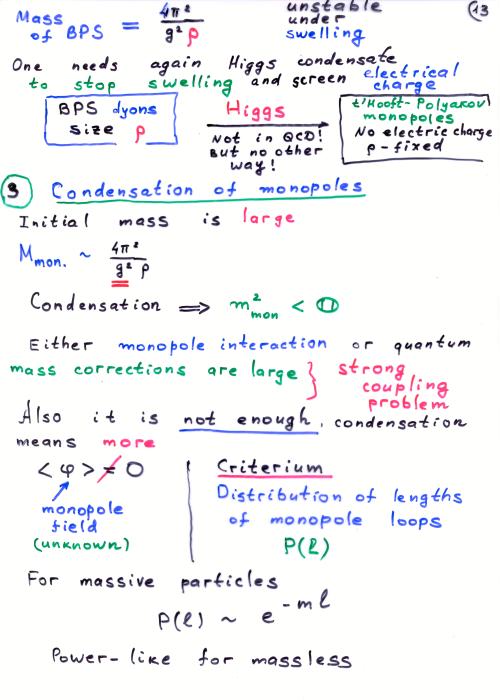 13
Mass of BPS = 4π² / g² ρ unstable under swelling
One needs again Higgs condensate
to stop swelling and screen electrical charge
BPS dyons
size ρ
Higgs
Not in QCD!
But no other
way!
t'Hooft-Polyakov
monopoles
No electric charge
ρ - fixed
3 Condensation of monopoles
Initial mass is large
M mon. ~ 4π² / g² ρ
Condensation ⇒ m² mon < 0
Either monopole interaction or quantum
mass corrections are large } strong coupling problem
Also it is not enough, condensation
means more
< φ > ≠ 0
monopole
field
(unknown)
Criterium
Distribution of lengths
of monopole loops
P(ℓ)
For massive particles
P(ℓ) ~ e^{-mℓ}
Power-like for massless